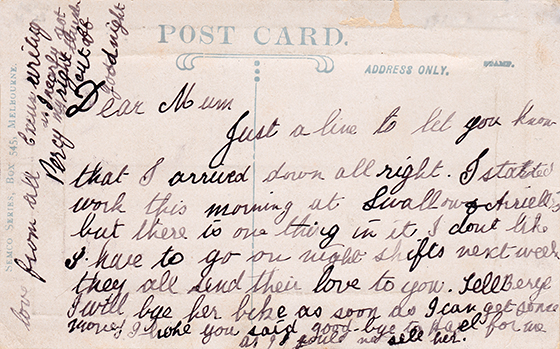 POST CARD.
ADDRESS ONLY.
STAMP.
SEMCO SERIES, BOX 545, MELBOURNE.
Dear Mum
Just a line to let you know
that I arrived down all right. I started
work this morning at Swallow & Ariell's
but there is one thing in it I dont like
I have to go on night shifts next week
they all send their love to you. Tell Beryl
I will bye her bike as soon as I can get some
money I hope you said good-bye to Hazel for me
as I could no sell her.
love from all
Percy
Excuse writing
as I nearly
my right
out off
Goodnight